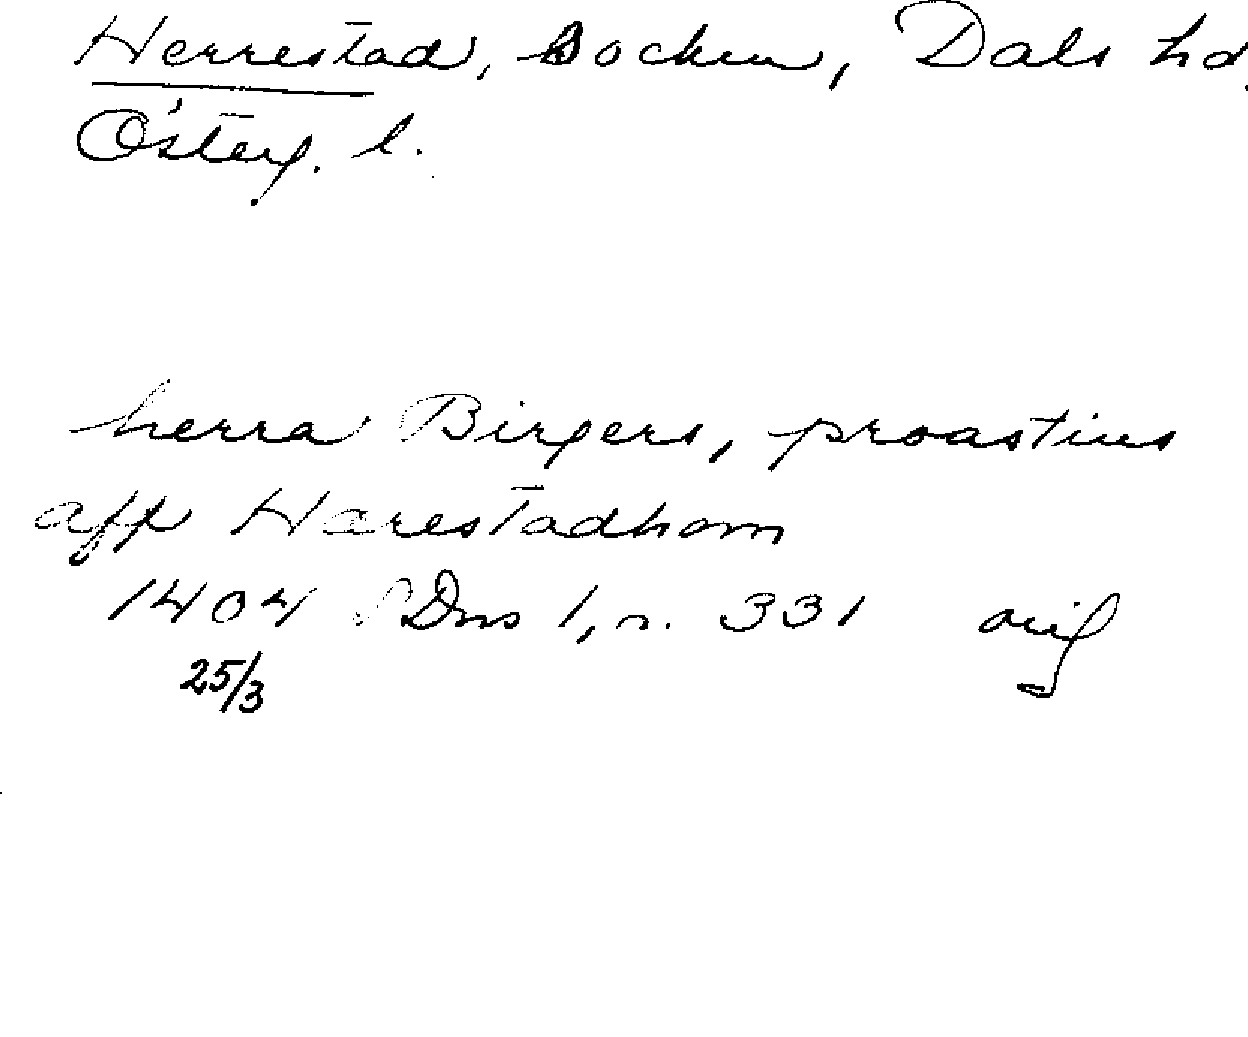 Herrestad, Socken, Dals hd,
Österg. l.
herra Birgers, proastins
aff Harestadhom
1404 SDns 1, n. 331 orig
25/3